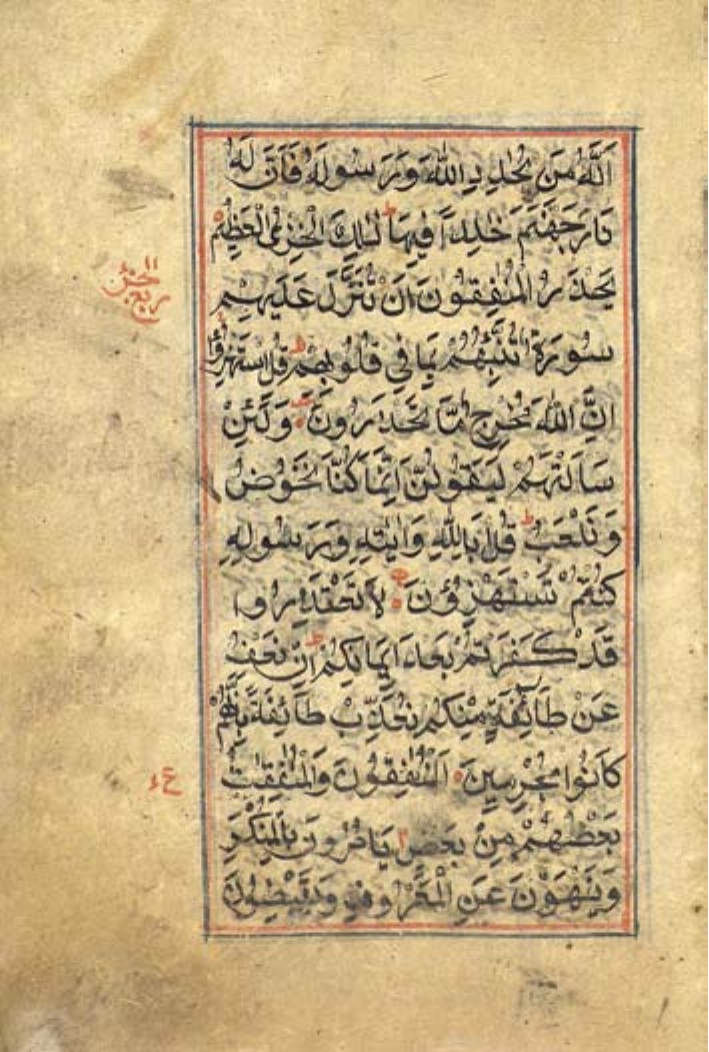 اَنَّهُ مَنْ يُّحَادِدِ اللّٰهَ وَرَسُولَهُ فَاَنَّ لَهُ
نَارَ جَهَنَّمَ خٰلِدًا فِيهَا ؕ ذٰلِكَ الْخِزْيُ الْعَظِيمُ
يَحْذَرُ الْمُنٰفِقُونَ اَنْ تُنَزَّلَ عَلَيْهِمْ
سُورَةٌ تُنَبِّئُهُمْ بِمَا فِي قُلُوبِهِمْ ؕ قُلِ اسْتَهْزِءُوا
اِنَّ اللّٰهَ مُخْرِجٌ مَّا تَحْذَرُونَ وَلَئِنْ
سَاَلْتَهُمْ لَيَقُولُنَّ اِنَّمَا كُنَّا نَخُوضُ
وَنَلْعَبُ ؕ قُلْ اَبِاللّٰهِ وَاٰيٰتِهٖ وَرَسُولِهٖ
كُنْتُمْ تَسْتَهْزِؤُنَ لَا تَعْتَذِرُوا
قَدْ كَفَرْتُمْ بَعْدَ اِيمَانِكُمْ ؕ اِنْ نَعْفُ
عَنْ طَائِفَةٍ مِنْكُمْ نُعَذِّبْ طَائِفَةً بِاَنَّهُمْ
كَانُوا مُجْرِمِينَ اَلْمُنٰفِقُونَ وَالْمُنٰفِقٰتُ
بَعْضُهُمْ مِنْ بَعْضٍ يَاْمُرُونَ بِالْمُنْكَرِ
وَيَنْهَوْنَ عَنِ الْمَعْرُوفِ وَيَقْبِضُونَ
ربع الحزب